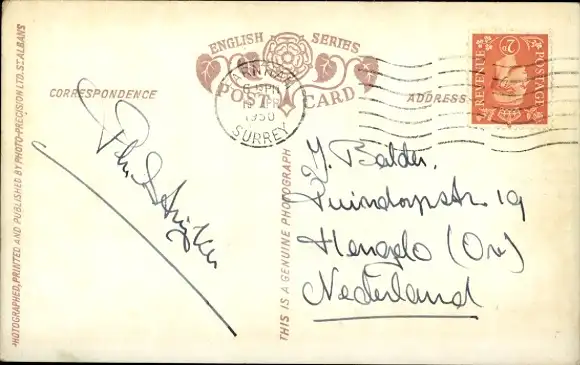 ENGLISH SERIES
POST CARD
CORRESPONDENCE
ADDRESS
PHOTOGRAPHED, PRINTED AND PUBLISHED BY PHOTO-PRECISION LTD. ST. ALBANS
THIS IS A GENUINE PHOTOGRAPH
1950
SURREY
POSTAGE
REVENUE
2D
Y. Balder.
Tuindorpstr. 19
Hengelo (Ov)
Nederland